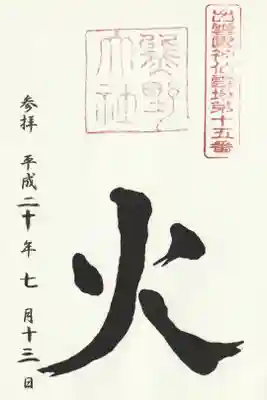 出雲國神仏霊場第十五番
熊野大社
火
参拝 平成二十年七月十三日